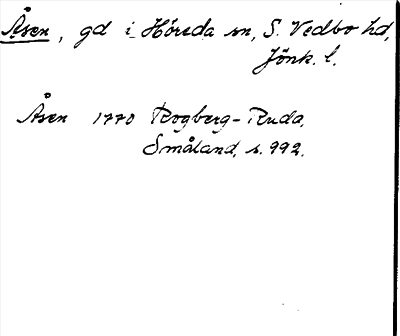 Åsen, gd i Höreda sn, S. Vedbo hd,
Jönk. l.
Åsen 1770 Rogberg-Ruda,
Småland, s. 992.